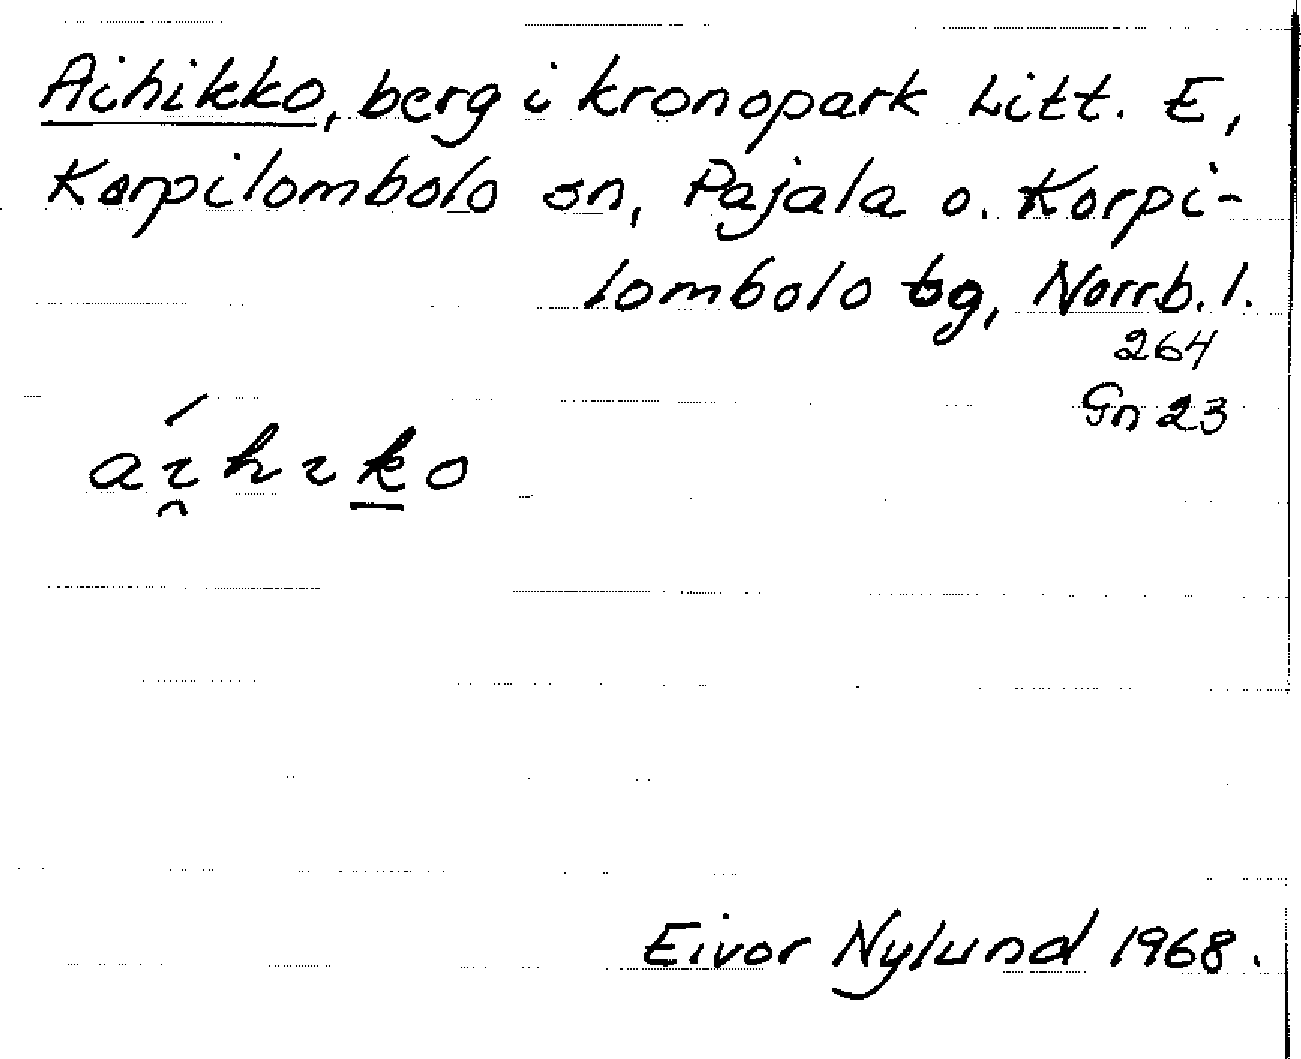 Aihikko, berg i kronopark Litt. E,
Korpilombolo sn, Pajala o. Korpi-
lombolo tg, Norrb. l.
264
Gn 23
aíhiko
Eivor Nylund 1968.